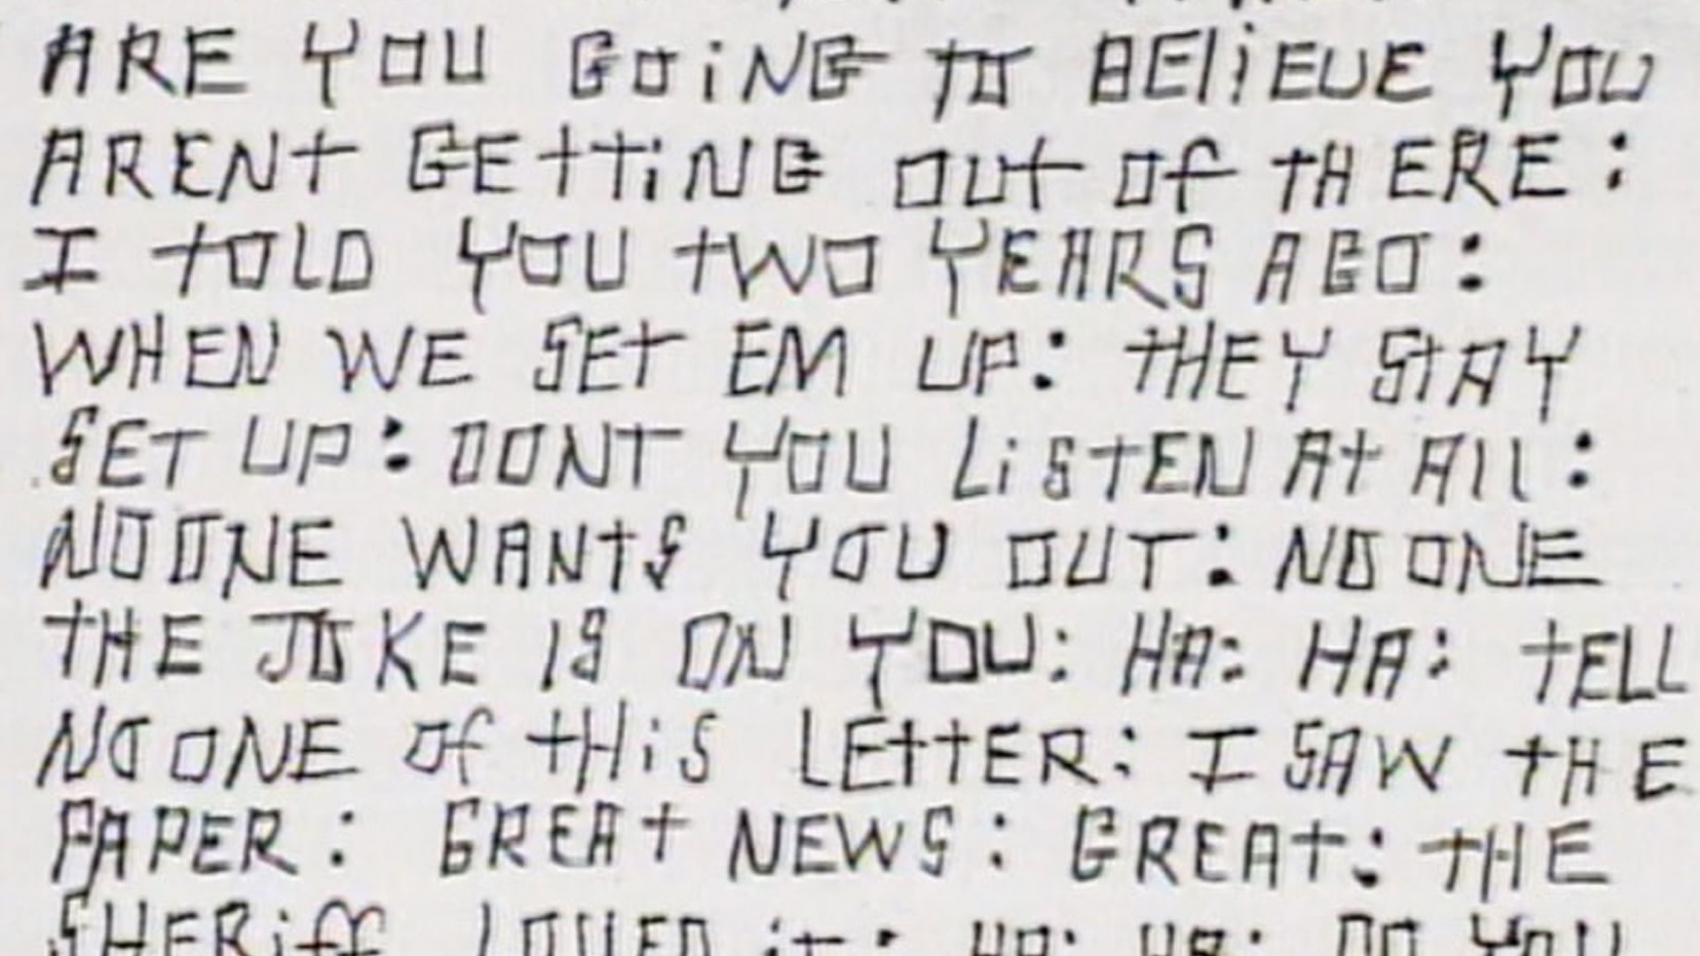 ARE YOU GOiNG TO BEliEUE YOU
ARENt GEttiNG OUt Of tHERE:
I tOLD YOU tWO YEARS AGO:
WHEN WE SEt EM UP: tHEY StAY
SET UP: DONT YOU LiStEN At All:
NOONE WANtS YOU OUT: NO ONE
tHE JOKE IS ON YOU: HA: HA: tELL
NO ONE Of tHiS LEttER: I SAW tHE
PAPER: GREAt NEWS: GREAt: tHE
SHERiff LOUED it: HA: HA: DO YOU